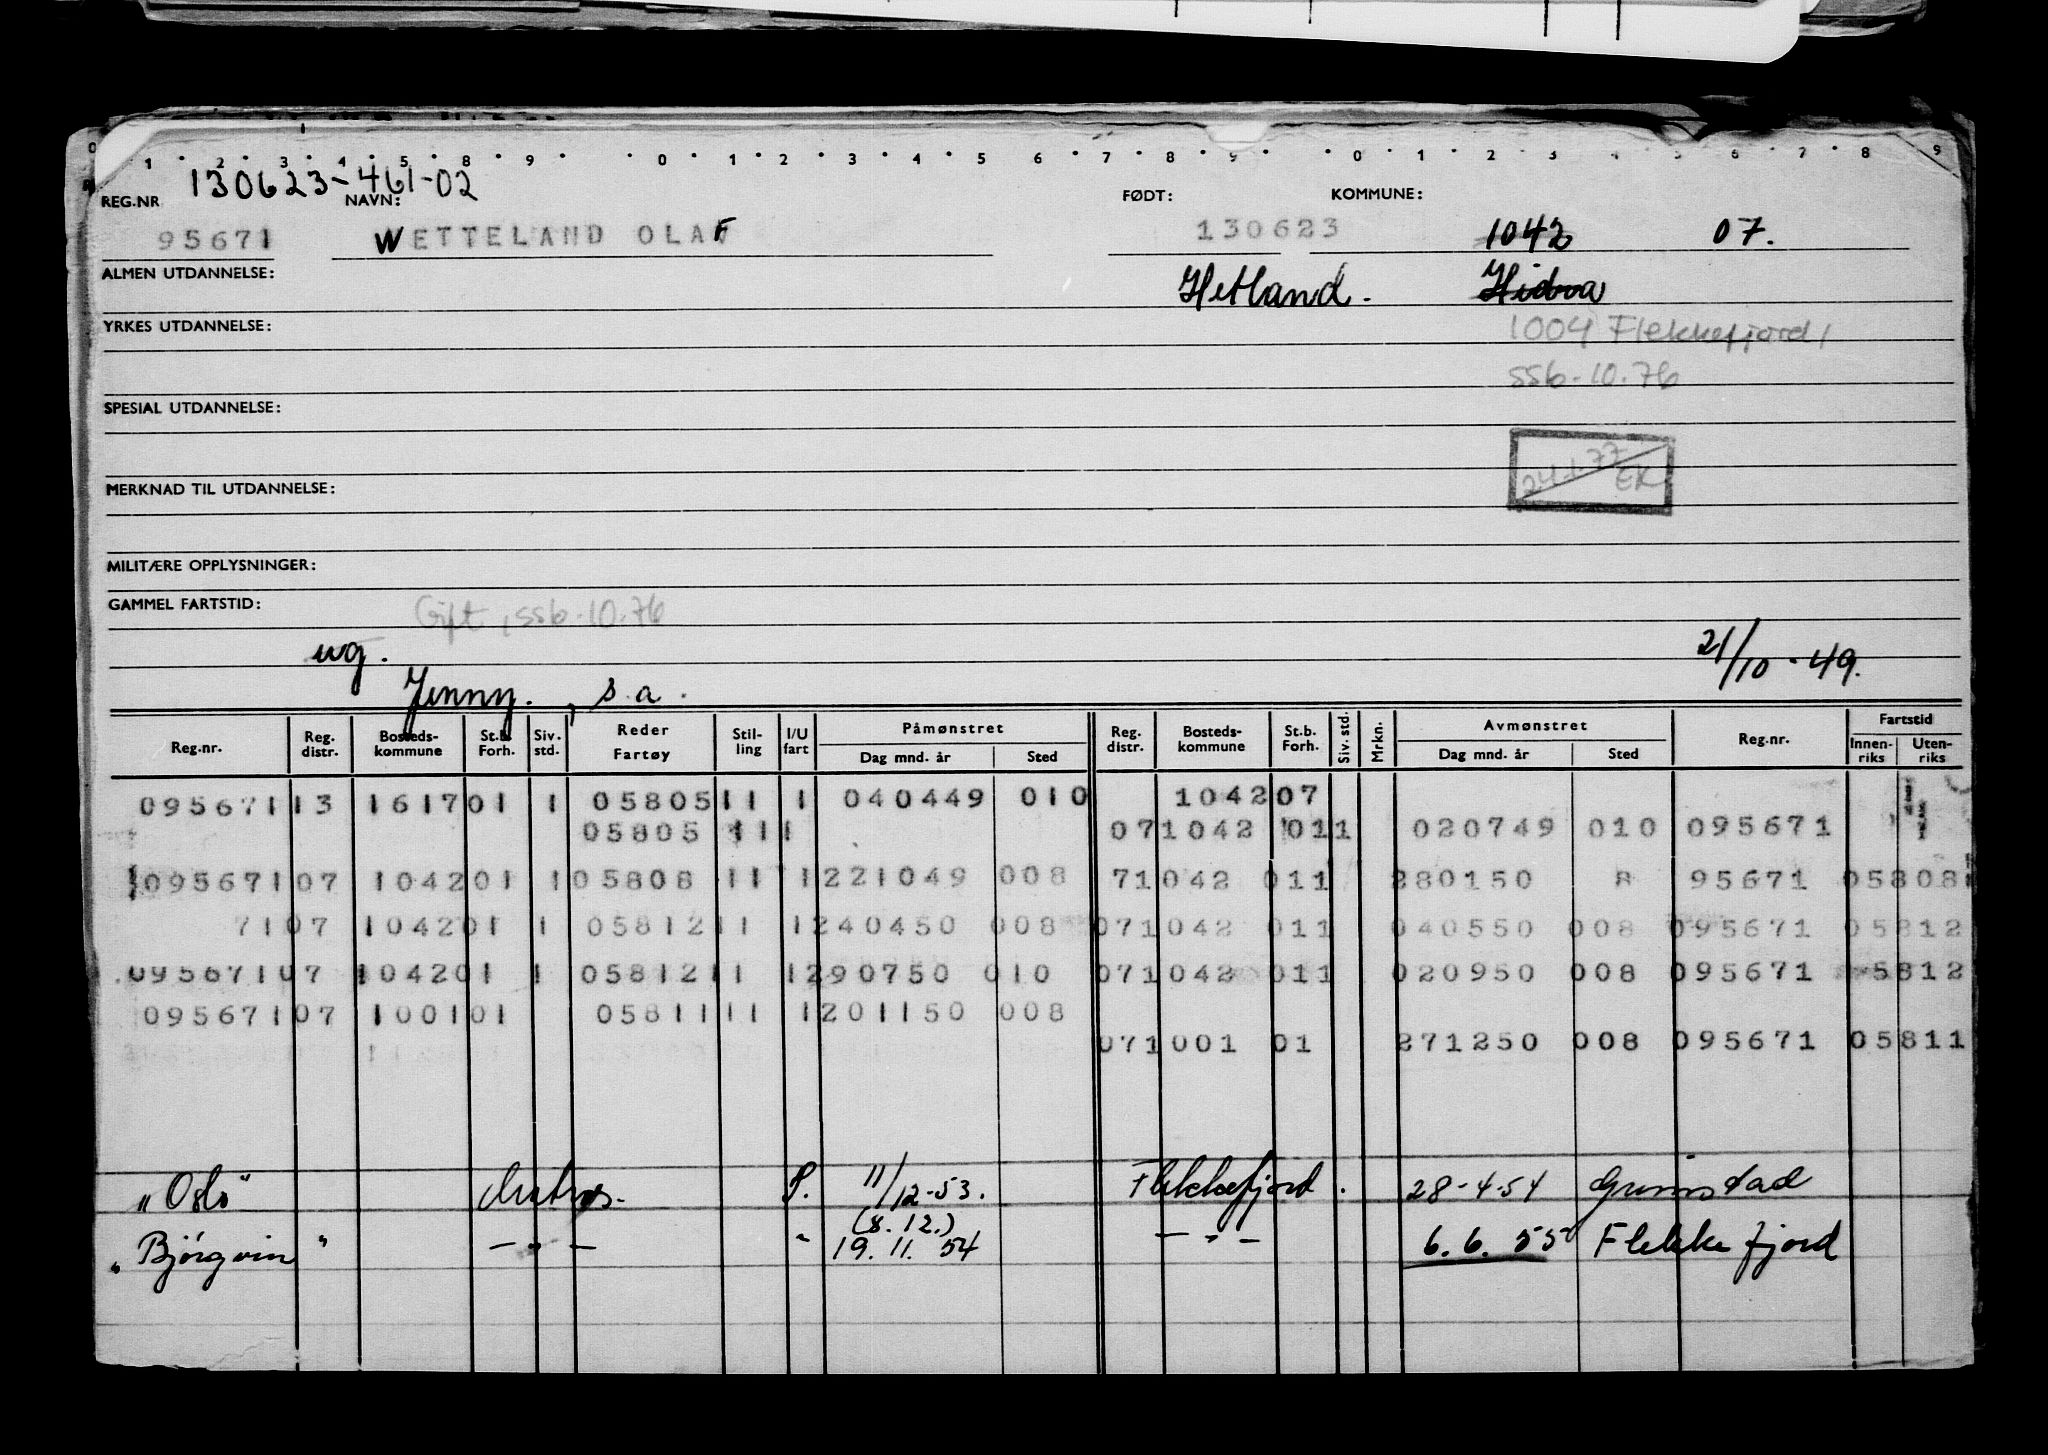 1 2 3 4 5 8 9 0 1 2 3 4 5 6 7 8 9 0 1 2 3 4 5 6 7 8 9
130623-461-02
REG.NR NAVN: FØDT: KOMMUNE:
95671 WETTELAND OLAF 130623 1042 07.
ALMEN UTDANNELSE: Hetland. Hidra
YRKES UTDANNELSE: 1004 Flekkefjord
ssb.10.76
SPESIAL UTDANNELSE:
24.1.77 EK
MERKNAD TIL UTDANNELSE:
MILITÆRE OPPLYSNINGER:
GAMMEL FARTSTID: Gift, ssb.10.76
ug. 21/10-49.
Jenny., s.a.
Reg.nr. Reg. distr. Bosteds- kommune St.b. Forh. Siv. std. Reder Fartøy Stil- ling I/U fart Påmønstret Dag mnd. år Sted Reg. distr. Bosteds- kommune St.b. Forh. Siv. std. Mrkn. Avmønstret Dag mnd. år Sted Reg.nr. Fartstid Innen- riks Uten- riks
095671 13 1617 01 1 05805 11 1 040449 010 1042 07
05805 11 1 07 1042 01 1 020749 010 095671
095671 07 1042 01 1 05808 11 1 221049 008 7 1042 01 1 280150 8 95671 05808
71 07 1042 01 1 05812 11 1 240450 008 07 1042 01 1 040550 008 095671 05812
095671 07 1042 01 1 05812 11 1 290750 010 07 1042 01 1 020950 008 095671 5812
095671 07 1001 01 05811 11 1 201150 008
07 1001 01 271250 008 095671 05811
"Oslo" Matros. 11/12-53. Flekkefjord. 28-4-54 Grimstad
(8.12.)
"Bjørgvin" - " - " 19.11.54 - " - 6.6.55 Flekkefjord